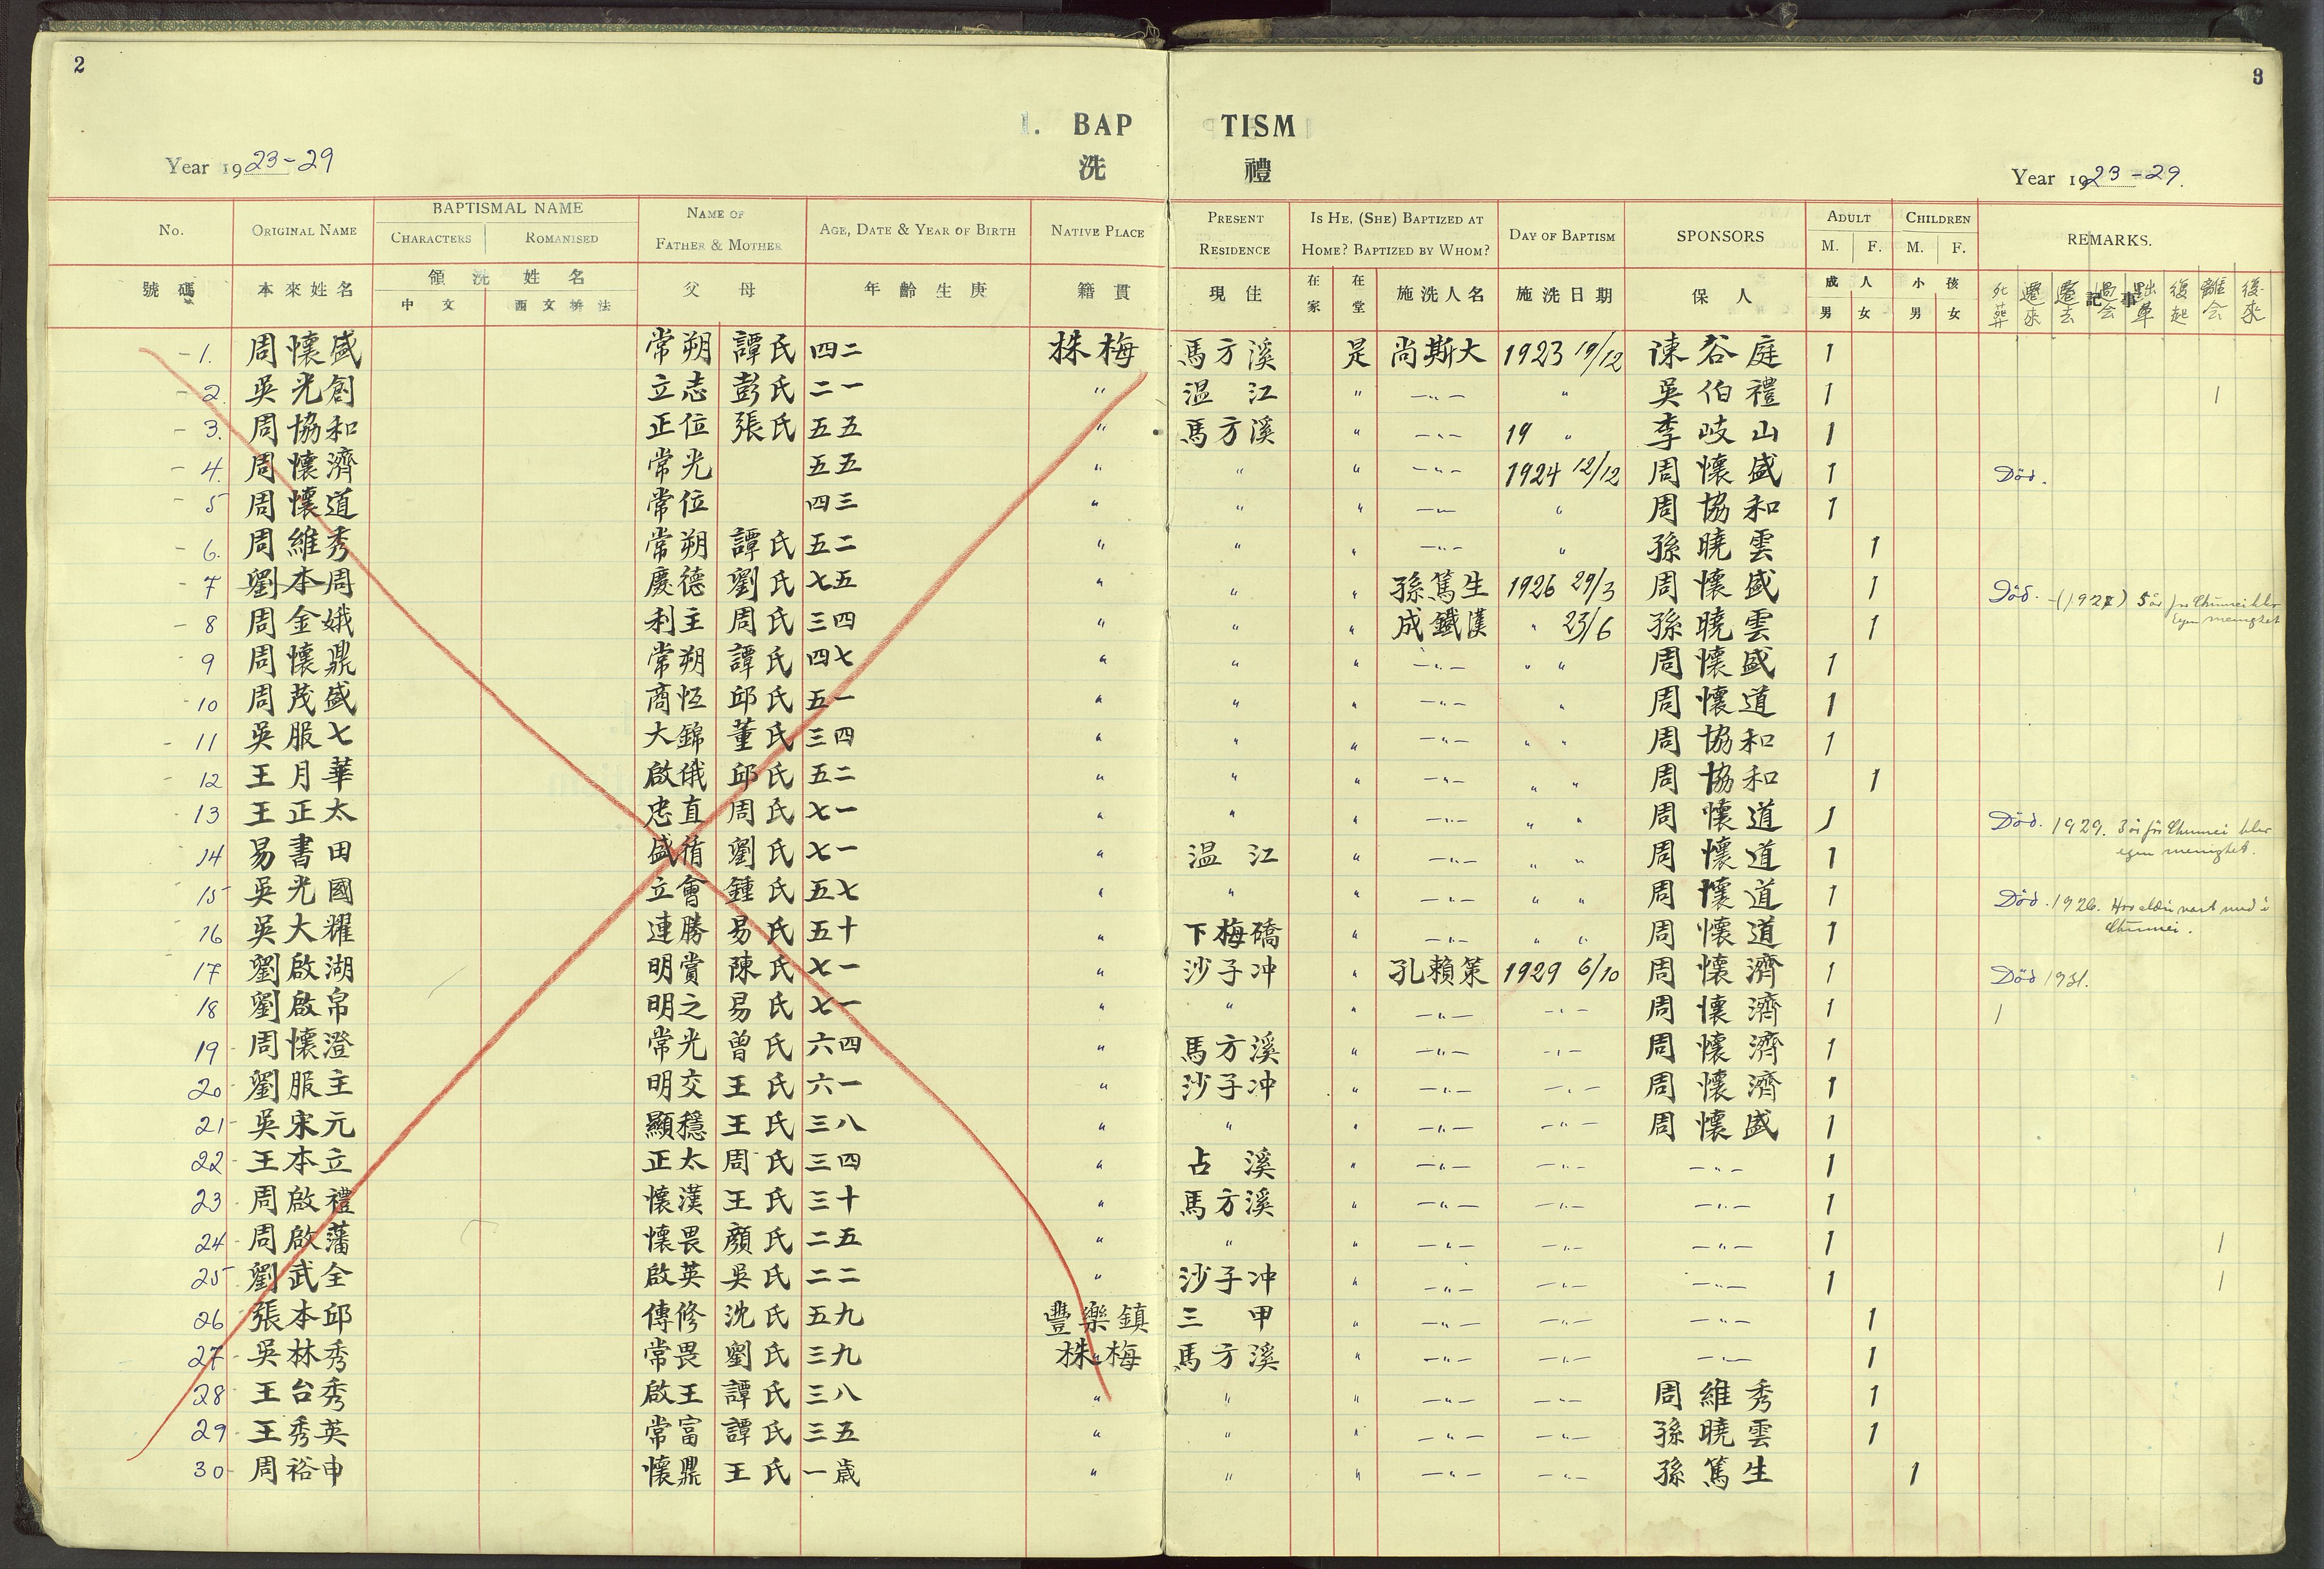 2
3
I. BAP TISM
洗 禮
Year 1923-29
Year 1923-29.
No. ORIGINAL NAME BAPTISMAL NAME CHARACTERS ROMANISED NAME OF FATHER & MOTHER AGE, DATE & YEAR OF BIRTH NATIVE PLACE PRESENT RESIDENCE IS HE, (SHE) BAPTIZED AT HOME? BAPTIZED BY WHOM? DAY OF BAPTISM SPONSORS ADULT M. F. CHILDREN M. F. REMARKS.
號碼 本來姓名 領洗姓名 中文 西文拚法 父母 年齡生庚 籍貫 現住 在家 在堂 施洗人名 施洗日期 保人 成人 男 女 小孩 男 女 記事 死葬 遷來 遷去 離会
1. 周懷盛 常朔 譚氏 四二 株梅 馬方溪 是 尚斯大 1923 19/12 谏谷庭 1
2. 吳光創 立志 彭氏 二一 〃 温江 〃 —〃— 〃 吳伯禮 1 1
3. 周協和 正位 張氏 五五 〃 馬方溪 〃 —〃— 19 〃 李岐山 1
4. 周懷濟 常光 五五 〃 〃 〃 —〃— 1924 12/12 周懷盛 1 Död.
5 周懷道 常位 四三 〃 〃 〃 —〃— 〃 周協和 1
6. 周維秀 常朔 譚氏 五二 〃 〃 〃 —〃— 〃 孫曉雲 1
7 劉本周 慶德 劉氏 七五 〃 〃 〃 孫篤生 1926 29/3 周懷盛 1 Död. -(1927) 5 år
egen menighet
8 周金娥 利主 周氏 三四 〃 〃 〃 成鐵漢 〃 23/6 孫曉雲 1
9 周懷鼎 常朔 譚氏 四七 〃 〃 〃 —〃— 〃 〃 周懷盛 1
10 周茂盛 商恒 邱氏 五一 〃 〃 〃 —〃— 〃 周懷道 1
11 吳服七 大錦 董氏 三四 〃 〃 〃 —〃— 〃 〃 周協和 1
12 王月華 啟俄 邱氏 五二 〃 〃 〃 —〃— 〃 〃 周協和 1
13 王正太 忠直 周氏 七一 〃 〃 〃 —〃— 〃 〃 周懷道 1 Död. 1929. 3 år för Chumei blev
egen menighet.
14 易書田 盛循 劉氏 七一 〃 温江 〃 —〃— 〃 〃 周懷道 1
15 吳光國 立會 鍾氏 五七 〃 〃 〃 —〃— 〃 〃 周懷道 1 Död. 1926. med i
Chumei.
16 吳大耀 連勝 易氏 五十 〃 下梅礄 〃 —〃— 〃 〃 周懷道 1
17 劉啟湖 明賞 陳氏 七一 〃 沙子冲 〃 孔賴策 1929 6/10 周懷濟 1 Död 1931.
18 劉啟帛 明之 易氏 七一 〃 〃 —〃— —〃— 周懷濟 1 1
19 周懷澄 常光 曾氏 六四 〃 馬方溪 〃 —〃— —〃— 周懷濟 1
20 劉服主 明交 王氏 六一 〃 沙子冲 〃 —〃— —〃— 周懷濟 1
21 吳宋元 顯穩 王氏 三八 〃 〃 〃 —〃— —〃— 周懷盛 1
22 王本立 正太 周氏 三四 〃 占溪 〃 —〃— —〃— —〃— 1
23 周啟禮 懷漢 王氏 三十 〃 馬方溪 〃 —〃— —〃— —〃— 1
24 周啟藩 懷畏 顏氏 二五 〃 〃 〃 —〃— —〃— —〃— 1 1
25 劉武全 啟英 吳氏 二二 〃 沙子冲 〃 —〃— —〃— —〃— 1 1
26 張本邱 傳修 沈氏 五九 豐樂鎮 三甲 〃 —〃— —〃— —〃— 1
27 吳林秀 常畏 劉氏 三九 株梅 馬方溪 〃 —〃— —〃— —〃— 1
28 王台秀 啟王 譚氏 三八 〃 〃 〃 —〃— —〃— 周維秀 1
29 王秀英 常富 譚氏 三五 〃 〃 〃 —〃— —〃— 孫曉雲 1
30 周裕申 懷鼎 王氏 一歲 〃 〃 〃 —〃— —〃— 孫篤生 1